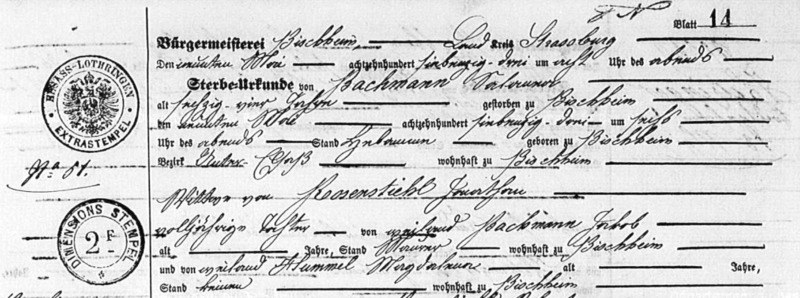 Blatt 14
Bürgermeisterei Bischheim Land Kreis Strassburg
Den neunten Mai achtzehnhundert siebenzig-drei um acht Uhr des abends
Sterbe-Urkunde von Bachmann Salomea
alt sechszig-vier Jahre gestorben zu Bischheim
den neunten Mai achtzehnhundert siebenzig-drei um sechs
Uhr des abends Stand Hebamme geboren zu Bischheim
Bezirk Unter-Elsaß wohnhaft zu Bischheim
Wittwe von Rosenstiehl Jonathan
volljährige Tochter von weiland Bachmann Jakob
alt Jahre, Stand Maurer wohnhaft zu Bischheim
und von weiland Hummel Magdalena alt Jahre,
Stand keinen wohnhaft zu Bischheim
ELSASS-LOTHRINGEN
EXTRASTEMPEL
No 51.
DIMENSIONS STEMPEL
2 F